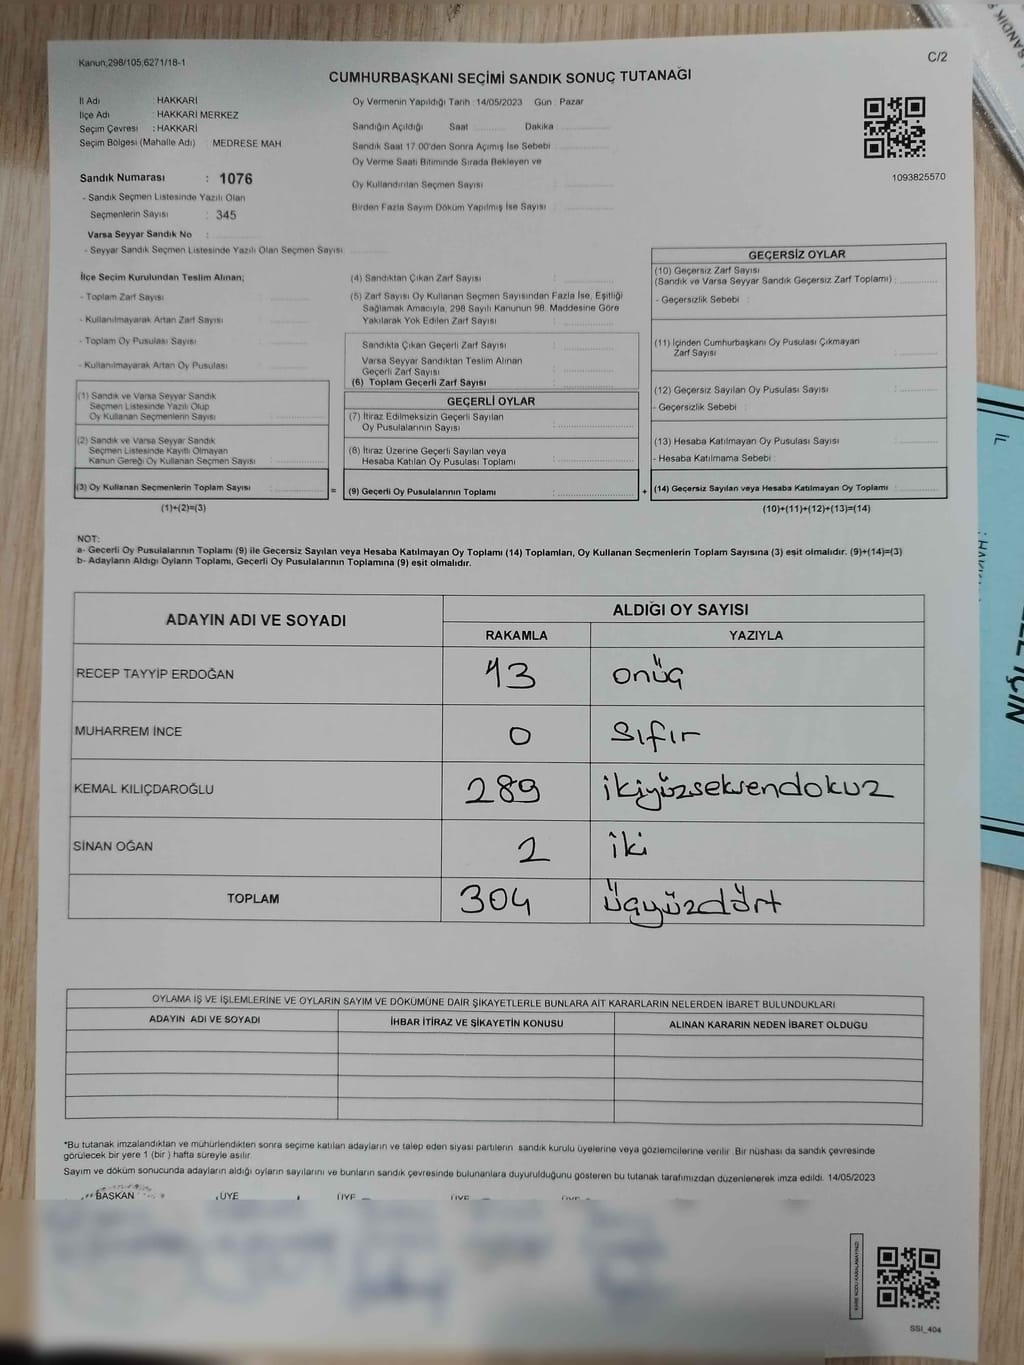 Kanun;298/105,6271/18-1
C/2
CUMHURBAŞKANI SEÇİMİ SANDIK SONUÇ TUTANAĞI
İl Adı : HAKKARİ
İlçe Adı : HAKKARİ MERKEZ
Seçim Çevresi : HAKKARİ
Seçim Bölgesi (Mahalle Adı) : MEDRESE MAH
Sandık Numarası : 1076
- Sandık Seçmen Listesinde Yazılı Olan
Seçmenlerin Sayısı : 345
Varsa Seyyar Sandık No :
- Seyyar Sandık Seçmen Listesinde Yazılı Olan Seçmen Sayısı:
Oy Vermenin Yapıldığı Tarih : 14/05/2023 Gün : Pazar
Sandığın Açıldığı Saat Dakika
Sandık Saat 17:00'den Sonra Açımış İse Sebebi
Oy Verme Saati Bitiminde Sırada Bekleyen ve
Oy Kullandırılan Seçmen Sayısı :
Birden Fazla Sayım Döküm Yapılmış İse Sayısı :
1093825570
İlçe Seçim Kurulundan Teslim Alınan;
- Toplam Zarf Sayısı :
- Kullanılmayarak Artan Zarf Sayısı :
- Toplam Oy Pusulası Sayısı :
- Kullanılmayarak Artan Oy Pusulası :
(1) Sandık ve Varsa Seyyar Sandık
Seçmen Listesinde Yazılı Olup
Oy Kullanan Seçmenlerin Sayısı :
(2) Sandık ve Varsa Seyyar Sandık
Seçmen Listesinde Kayıtlı Olmayan
Kanun Gereği Oy Kullanan Seçmen Sayısı :
(3) Oy Kullanan Seçmenlerin Toplam Sayısı :
(1)+(2)=(3)
(4) Sandıktan Çıkan Zarf Sayısı :
(5) Zarf Sayısı Oy Kullanan Seçmen Sayısından Fazla İse, Eşitliği
Sağlamak Amacıyla, 298 Sayılı Kanunun 98. Maddesine Göre
Yakılarak Yok Edilen Zarf Sayısı :
Sandıkta Çıkan Geçerli Zarf Sayısı :
Varsa Seyyar Sandıktan Teslim Alınan
Geçerli Zarf Sayısı :
(6) Toplam Geçerli Zarf Sayısı :
GEÇERLİ OYLAR
(7) İtiraz Edilmeksizin Geçerli Sayılan
Oy Pusulalarının Sayısı :
(8) İtiraz Üzerine Geçerli Sayılan veya
Hesaba Katılan Oy Pusulası Toplamı :
= (9) Geçerli Oy Pusulalarının Toplamı :
GEÇERSİZ OYLAR
(10) Geçersiz Zarf Sayısı
(Sandık ve Varsa Seyyar Sandık Geçersiz Zarf Toplamı) :
- Geçersizlik Sebebi :
(11) İçinden Cumhurbaşkanı Oy Pusulası Çıkmayan
Zarf Sayısı :
(12) Geçersiz Sayılan Oy Pusulası Sayısı :
- Geçersizlik Sebebi :
(13) Hesaba Katılmayan Oy Pusulası Sayısı :
- Hesaba Katılmama Sebebi :
+ (14) Geçersiz Sayılan veya Hesaba Katılmayan Oy Toplamı :
(10)+(11)+(12)+(13)=(14)
NOT:
a- Gecerli Oy Pusulalarının Toplamı (9) ile Gecersiz Sayılan veya Hesaba Katılmayan Oy Toplamı (14) Toplamları, Oy Kullanan Seçmenlerin Toplam Sayısına (3) eşit olmalıdır. (9)+(14)=(3)
b- Adayların Aldığı Oyların Toplamı, Gecerli Oy Pusulalarının Toplamına (9) eşit olmalıdır.
ADAYIN ADI VE SOYADI
ALDIĞI OY SAYISI
RAKAMLA YAZIYLA
RECEP TAYYİP ERDOĞAN 13 onüç
MUHARREM İNCE 0 sıfır
KEMAL KILIÇDAROĞLU 289 ikiyüzseksendokuz
SİNAN OĞAN 2 iki
TOPLAM 304 üçyüzdört
OYLAMA İŞ VE İŞLEMLERİNE VE OYLARIN SAYIM VE DÖKÜMÜNE DAİR ŞİKAYETLERLE BUNLARA AİT KARARLARIN NELERDEN İBARET BULUNDUKLARI
ADAYIN ADI VE SOYADI
İHBAR İTİRAZ VE ŞİKAYETİN KONUSU
ALINAN KARARIN NEDEN İBARET OLDUĞU
*Bu tutanak imzalandıktan ve mühürlendikten sonra seçime katılan adayların ve talep eden siyasi partilerin sandık kurulu üyelerine veya gözlemcilerine verilir .Bir nüshası da sandık çevresinde
görülecek bir yere 1 (bir ) hafta süreyle asılır.
Sayım ve döküm sonucunda adayların aldığı oyların sayılarını ve bunların sandık çevresinde bulunanlara duyurulduğunu gösteren bu tutanak tarafımızdan düzenlenerek imza edildi. 14/05/2023
BAŞKAN ÜYE ÜYE ÜYE
SSI_404
İL
İÇİN